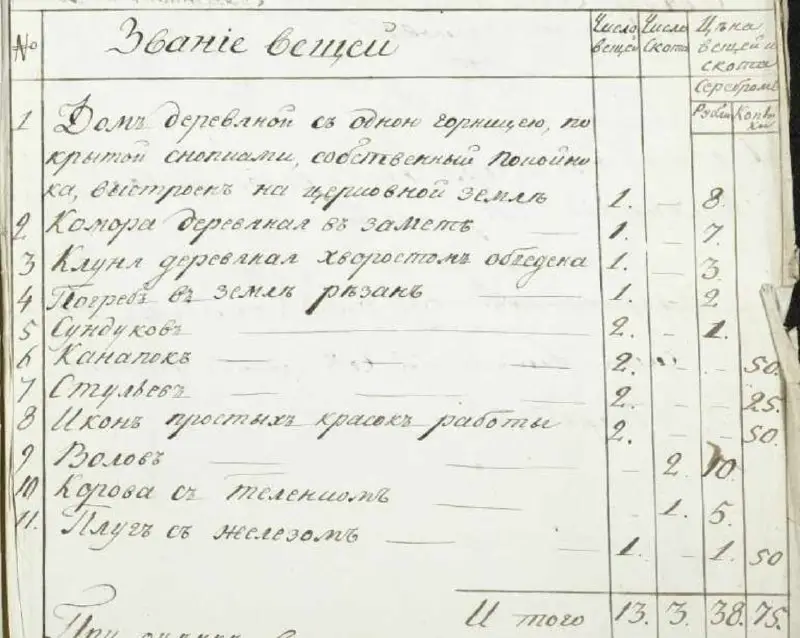 № Званіе вещей Число вещей Число скота Цѣна вещей и скота
Серебромъ
Рубли Копѣйки
1 Домъ деревяной съ одною горницею, по
крытой снопками, собственный покойни
ка, выстроенъ на церковной землѣ 1. — 8.
2 Комора деревяная въ заметъ 1. — 7.
3 Клуня деревяная хворостомъ обведена 1. — 3.
4 Погребъ въ землѣ рѣзанъ 1. — 2.
5 Сундуковъ 2. — 1.
6 Канапокъ 2. — 50.
7 Стульевъ 2. — — 25.
8 Иконъ простыхъ красокъ работы 2. — — 50.
9 Воловъ — 2. 10.
10 Корова съ теленкомъ — 1. 5.
11. Плугъ съ железомъ 1. — 1. 50
Итого 13. 3. 38. 75.
При